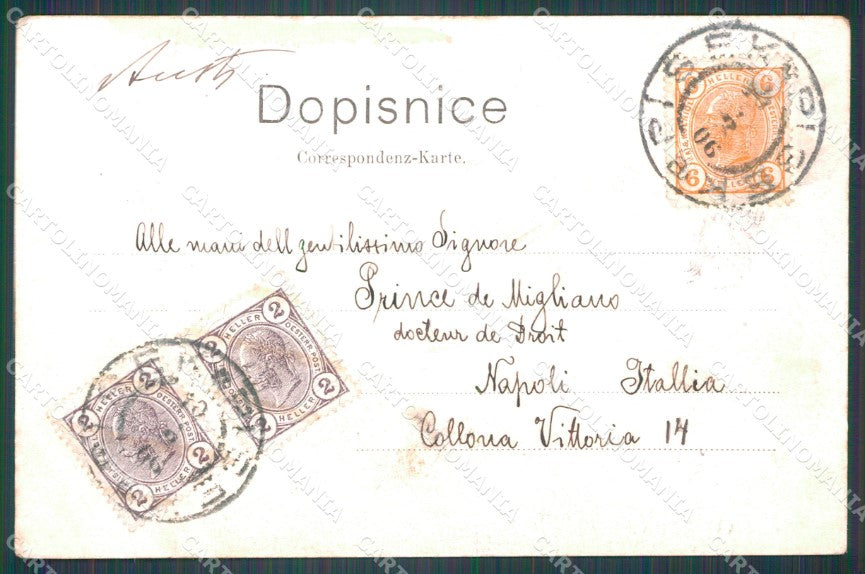 Dopisnice
Correspondenz-Karte.
Alle mani dell gentilissimo Signore
Prince de Migliano
docteur de Droit
Napoli Itallia
Collona Vittoria 14
6 HELLER 6
2 HELLER 2
OESTERR. POST
2 HELLER 2
2 HELLER 2
OESTERR. POST
2 HELLER 2
CARTOLINOMANIA